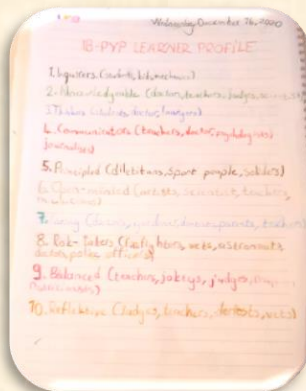 Wednesday December 16, 2020
IB-PYP LEARNER PROFILE
1. Inquirers (students, kids, mechanics)
2. Knowledgeable (doctors, teachers, judges,
3. Thinkers (students, doctor, lawyers)
4. Communicators (teachers, doctor,
journalists)
5. Principled (dietitians, sport people, soldiers)
6. Open-minded (artists, scientist, teachers,
musicians)
7. Caring (doctors, parents, teachers)
8. Risk-takers (firefighters, vets, astronauts,
doctors, police officers)
9. Balanced (teachers, jokeys, judges,
10. Reflective (Judges, teachers, dentists, vets)